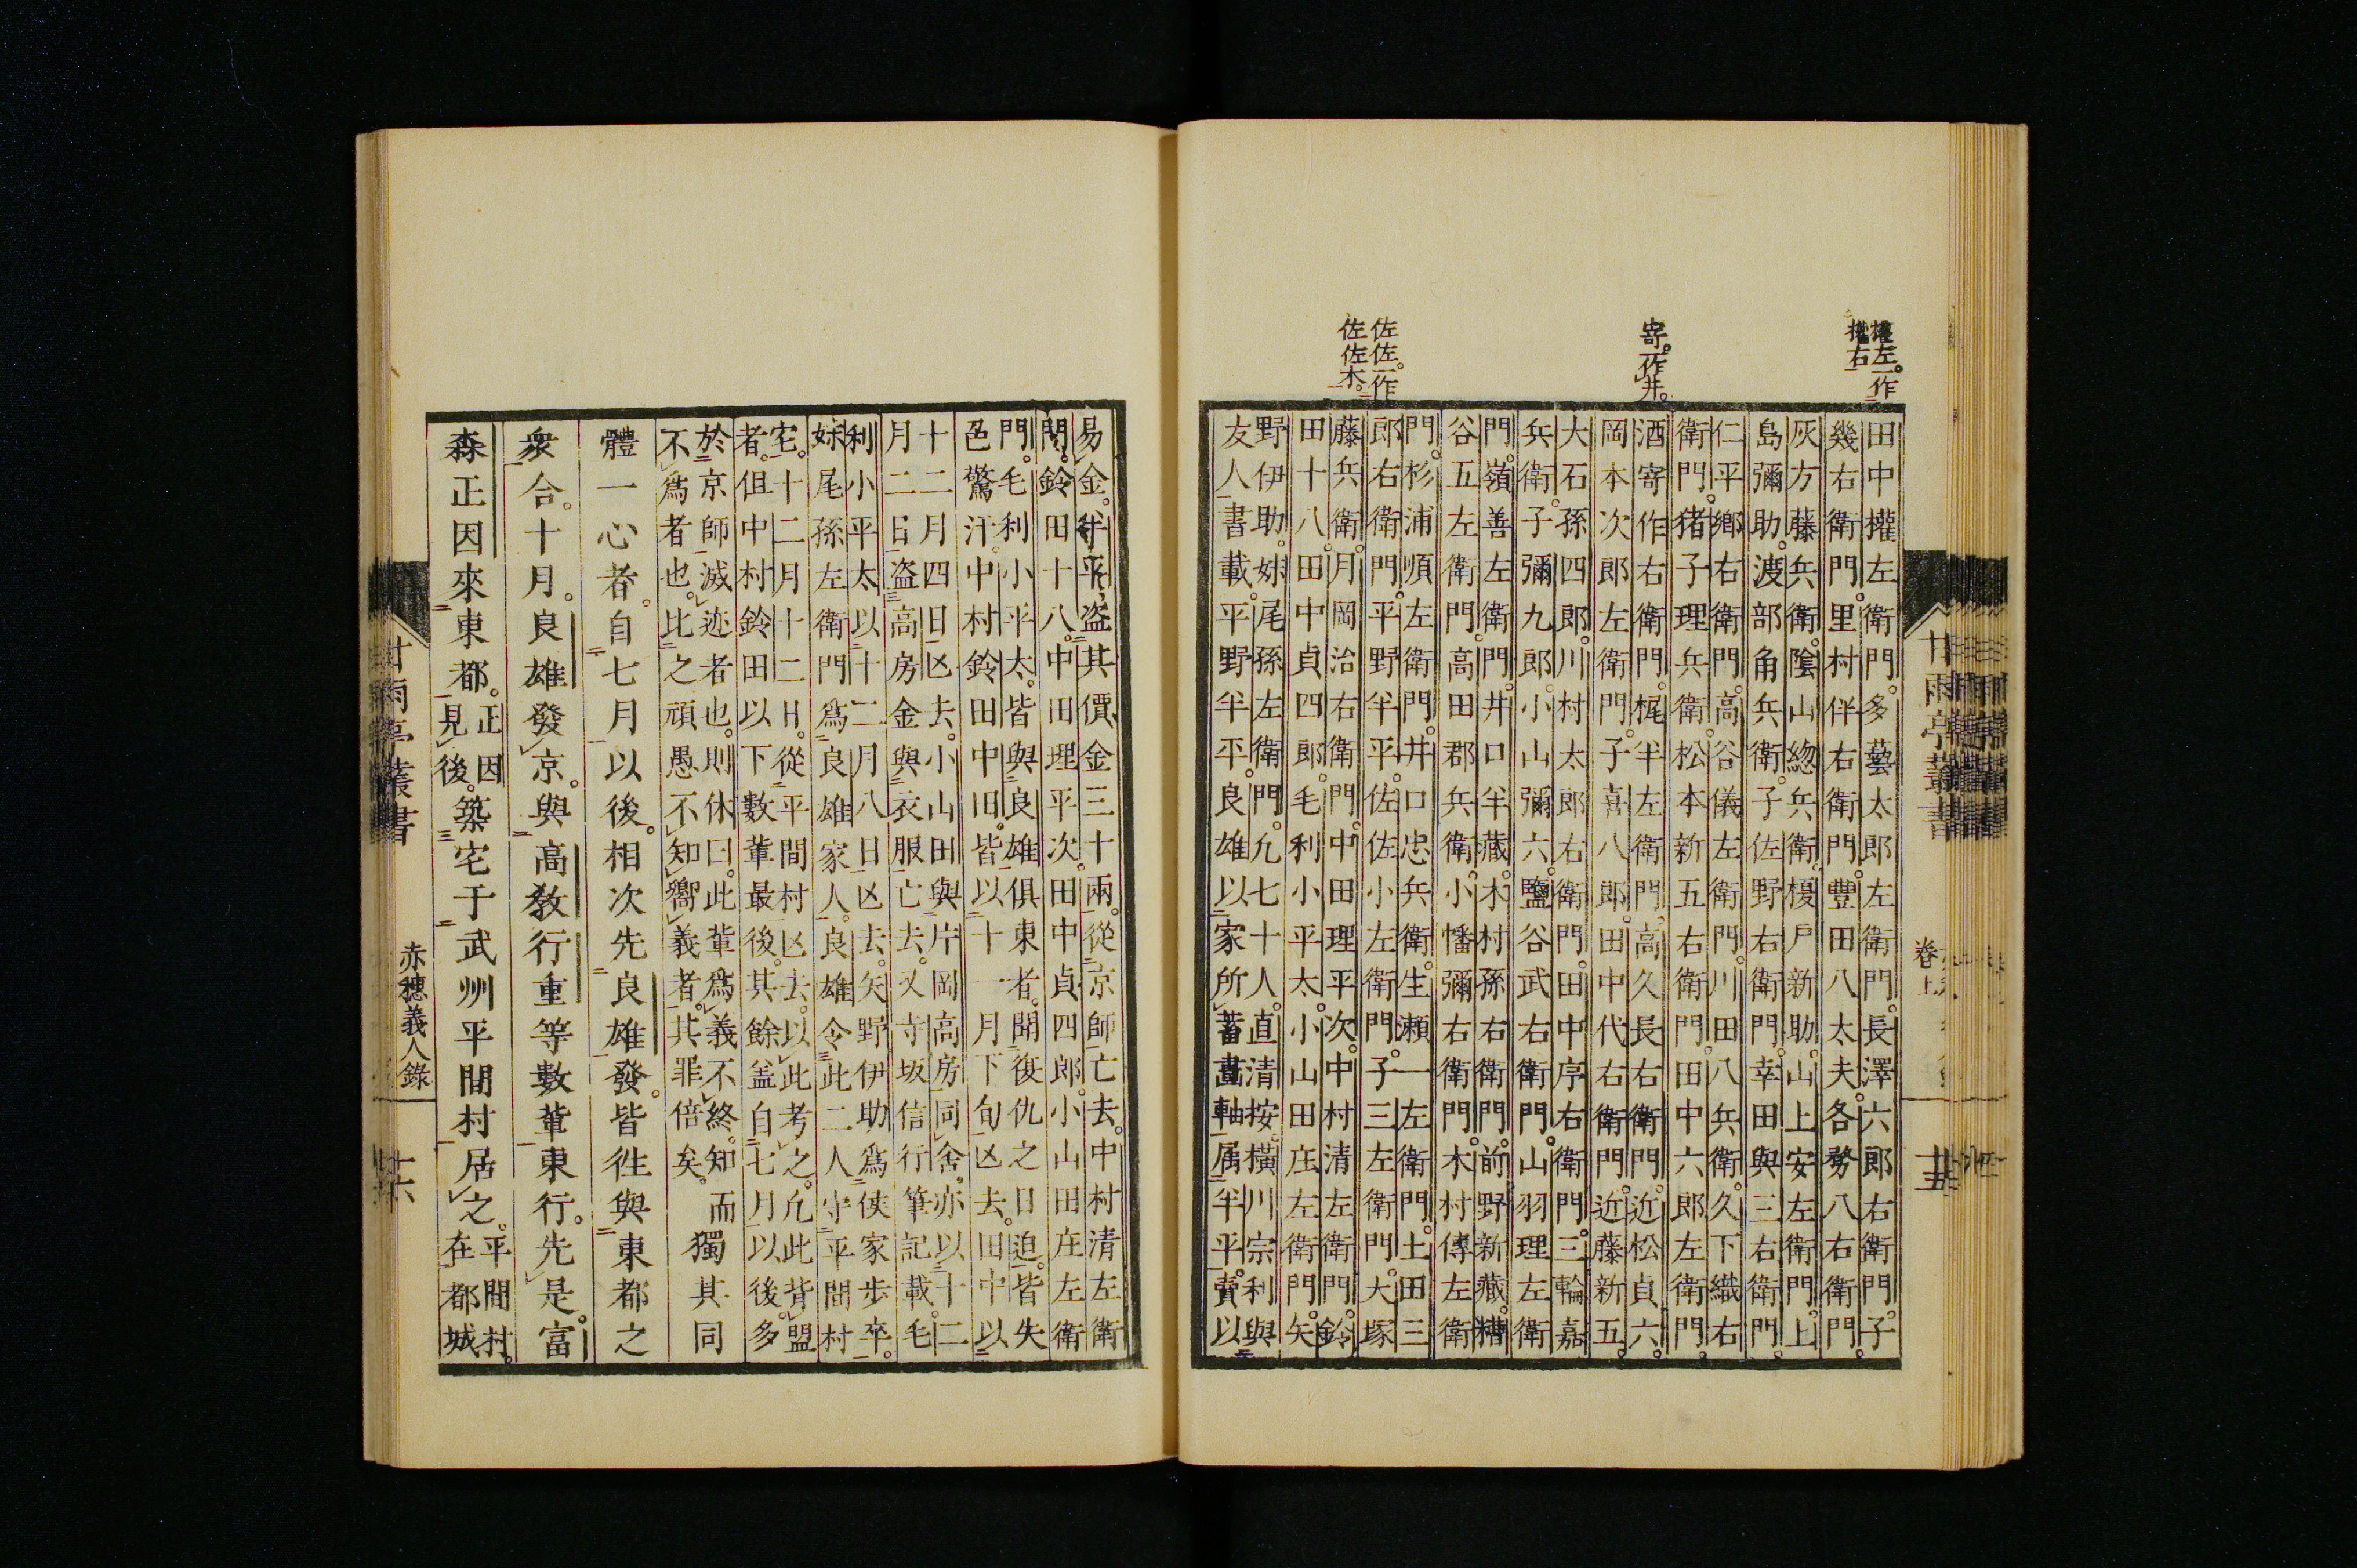 權左一作
權右
寄一作井。
佐佐一作
佐佐木。
田中權左衛門。多藝太郎左衛門。長澤六郎右衛門。子
幾右衛門。里村伴右衛門。豐田八太夫。各務八右衛門。
灰方藤兵衛。陰山總兵衛。榎戶新助。山上安左衛門。上
島彌助。渡部角兵衛。子佐野右衛門。幸田與三右衛門。
仁平鄉右衛門。高谷儀左衛門。川田八兵衛。久下織右
衛門。猪子理兵衛。松本新五右衛門。田中六郎左衛門。
酒寄作右衛門。梶半左衛門。高久長右衛門。近松貞六。
岡本次郎左衛門。子喜八郎。田中代右衛門。近藤新五。
大石孫四郎。川村太郎右衛門。田中序右衛門。三輪嘉
兵衛。子彌九郎。小山彌六。鹽谷武右衛門。山羽理左衛
門。嶺善左衛門。井口半藏。木村孫右衛門。前野新藏。糟
谷五左衛門。高田郡兵衛。小幡彌右衛門。木村傳左衛
門。杉浦順左衛門。井口忠兵衛。生瀨一左衛門。土田三
郎右衛門。平野半平。佐佐小左衛門。子三左衛門。大塚
藤兵衛。月岡治右衛門。中田理平次。中村清左衛門。鈴
田十八。田中貞四郎。毛利小平太。小山田庄左衛門。矢
野伊助。妹尾孫左衛門。凢七十人。直清按。橫川宗利與
友人書載。平野半平。良雄以家所蓄畵軸属半平。賣以
甘雨亭叢書
卷上
十五
易金。半平盗其價金三十兩。從京師亡去。中村清左衛
門。鈴田十八。中田理平次。田中貞四郎。小山田庄左衛
門。毛利小平太。皆與良雄俱東者。聞復仇之日迫。皆失
色驚汗。中村鈴田中田。皆以十一月下旬亾去。田中以
十二月四日亾去。小山田與片岡高房同舍。亦以十二
月二日盗高房金與衣服亡去。又寺坂信行筆記載。毛
利小平太以十二月八日亾去。矢野伊助爲侠家步卒。
妹尾孫左衛門爲良雄家人。良雄令此二人守平間村
宅。十二月十二日。從平間村亾去。以此考之。凢此背盟
者。但中村鈴田以下數輩最後。其餘盖自七月以後。多
於京師滅迹者也。則休曰。此輩爲義不終。知而
不爲者也。比之頑愚不知嚮義者。其罪倍矣。獨其同
體一心者。自七月以後。相次先良雄發。皆徃與東都之
衆合。十月。良雄發京。與高敎行重等數輩東行。先是。富
森正因來東都。正因
見後。築宅于武州平間村居之。平間村。
在都城
甘雨亭叢書
赤穗義人錄
十六